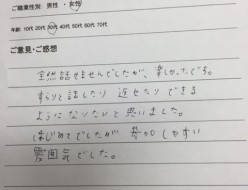 ご職業性別: 男性 ・ 女性
年齢: 10代 20代 30代 40代 50代 60代 70代
ご意見・ご感想
全然話せませんでしたが、楽しかったです。
すらりと話したり 返せたりできる
ようになりたいと思いました。
はじめてでしたが 参加しやすい
雰囲気でした。